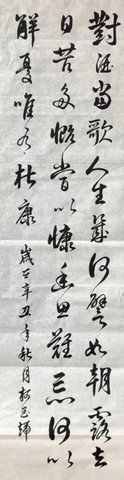 對酒當歌人生幾何譬如朝露去
日苦多慨當以慷幽思難忘何以
解憂唯有杜康 歲在辛丑年秋月